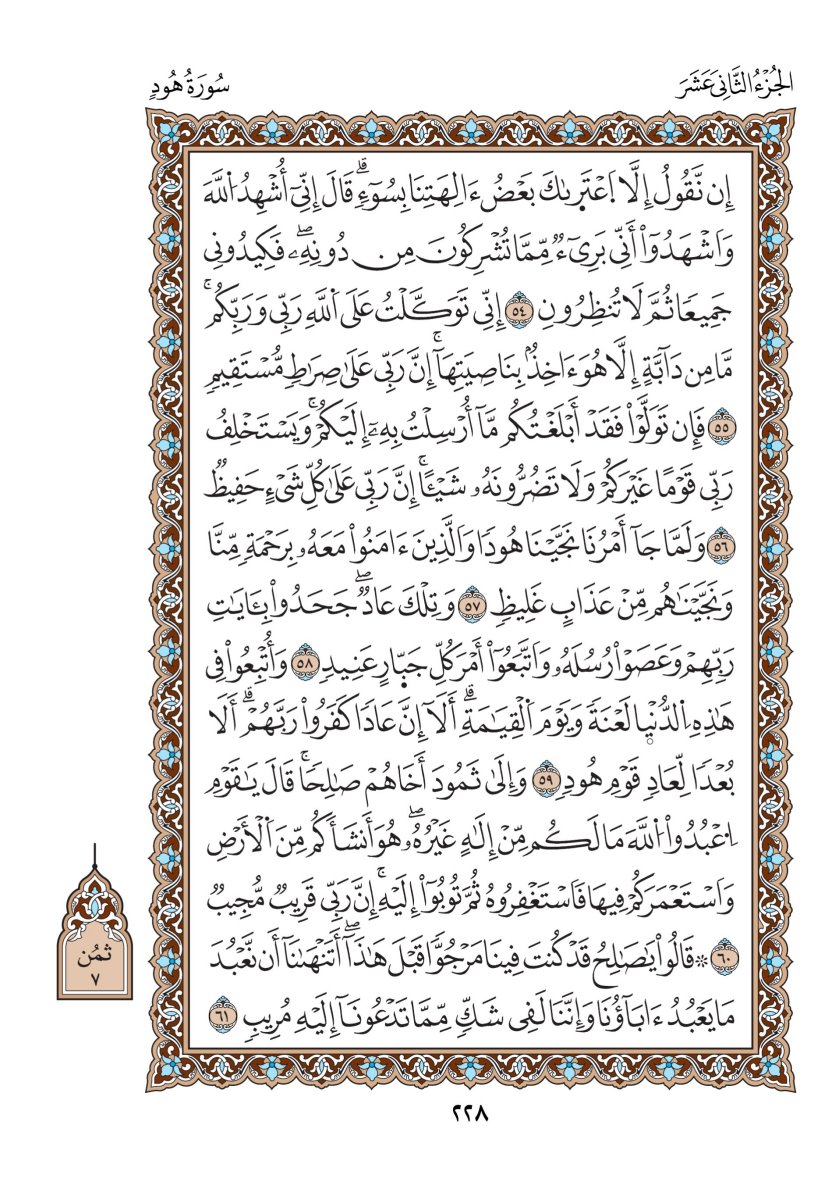 الجُزْءُ الثَّانِيَ عَشَرَ
سُورَةُ هُودٍ
إِن نَّقُولُ إِلَّا اَ۪عْتَر۪ىٰكَ بَعْضُ ءَالِهَتِنَا بِسُوٓءٖۗ قَالَ إِنِّيَ أُشْهِدُ اُ۬للَّهَ
وَاشْهَدُوٓاْ أَنِّي بَرِيٓءٞ مِّمَّا تُشْرِكُونَ مِن دُونِهِۦۖ فَكِيدُونِي
جَمِيعٗا ثُمَّ لَا تُنظِرُونِ ٥٤ إِنِّي تَوَكَّلْتُ عَلَى اَ۬للَّهِ رَبِّي وَرَبِّكُمۚ
مَّا مِن دَآبَّةٍ إِلَّا هُوَ ءَاخِذُۢ بِنَاصِيَتِهَآۚ إِنَّ رَبِّي عَلَىٰ صِرَٰطٖ مُّسْتَقِيمٖ
٥٥ فَإِن تَوَلَّوْاْ فَقَدْ أَبْلَغْتُكُم مَّآ أُرْسِلْتُ بِهِۦٓ إِلَيْكُمْۚ وَيَسْتَخْلِفُ
رَبِّي قَوْمًا غَيْرَكُمْ وَلَا تَضُرُّونَهُۥ شَيْـًٔاۚ إِنَّ رَبِّي عَلَىٰ كُلِّ شَيْءٍ حَفِيظٞ
٥٦ وَلَمَّا جَا أَمْرُنَا نَجَّيْنَا هُودٗا وَالَّذِينَ ءَامَنُواْ مَعَهُۥ بِرَحْمَةٖ مِّنَّا
وَنَجَّيْنَٰهُم مِّنْ عَذَابٍ غَلِيظٖ ٥٧ وَتِلْكَ عَادٞۖ جَحَدُواْ بِـَٔايَٰتِ
رَبِّهِمْ وَعَصَوْاْ رُسُلَهُۥ وَاتَّبَعُوٓاْ أَمْرَ كُلِّ جَبّ۪ارٍ عَنِيدٖ ٥٨ وَأُتْبِعُواْ فِي
هَٰذِهِ اِ۬لدُّنْي۪ا لَعْنَةٗ وَيَوْمَ اَ۬لْقِيَٰمَةِۗ أَلَآ إِنَّ عَادٗا كَفَرُواْ رَبَّهُمْۗ أَلَا
بُعْدٗا لِّعَادٖ قَوْمِ هُودٖ ٥٩ وَإِلَىٰ ثَمُودَ أَخَاهُمْ صَٰلِحٗاۚ قَالَ يَٰقَوْمِ
اِ۟عْبُدُواْ اُ۬للَّهَ مَا لَكُم مِّنْ إِلَٰهٍ غَيْرُهُۥۖ هُوَ أَنشَأَكُم مِّنَ اَ۬لْأَرْضِ
وَاسْتَعْمَرَكُمْ فِيهَا فَاسْتَغْفِرُوهُ ثُمَّ تُوبُوٓاْ إِلَيْهِۚ إِنَّ رَبِّي قَرِيبٞ مُّجِيبٞ
٦٠ ۞ قَالُواْ يَٰصَٰلِحُ قَدْ كُنتَ فِينَا مَرْجُوّٗا قَبْلَ هَٰذَآۖ أَتَنْهَىٰنَآ أَن نَّعْبُدَ
مَا يَعْبُدُ ءَابَآؤُنَا وَإِنَّنَا لَفِي شَكّٖ مِّمَّا تَدْعُونَآ إِلَيْهِ مُرِيبٖ ٦١
ثمُن
٧
٢٢٨